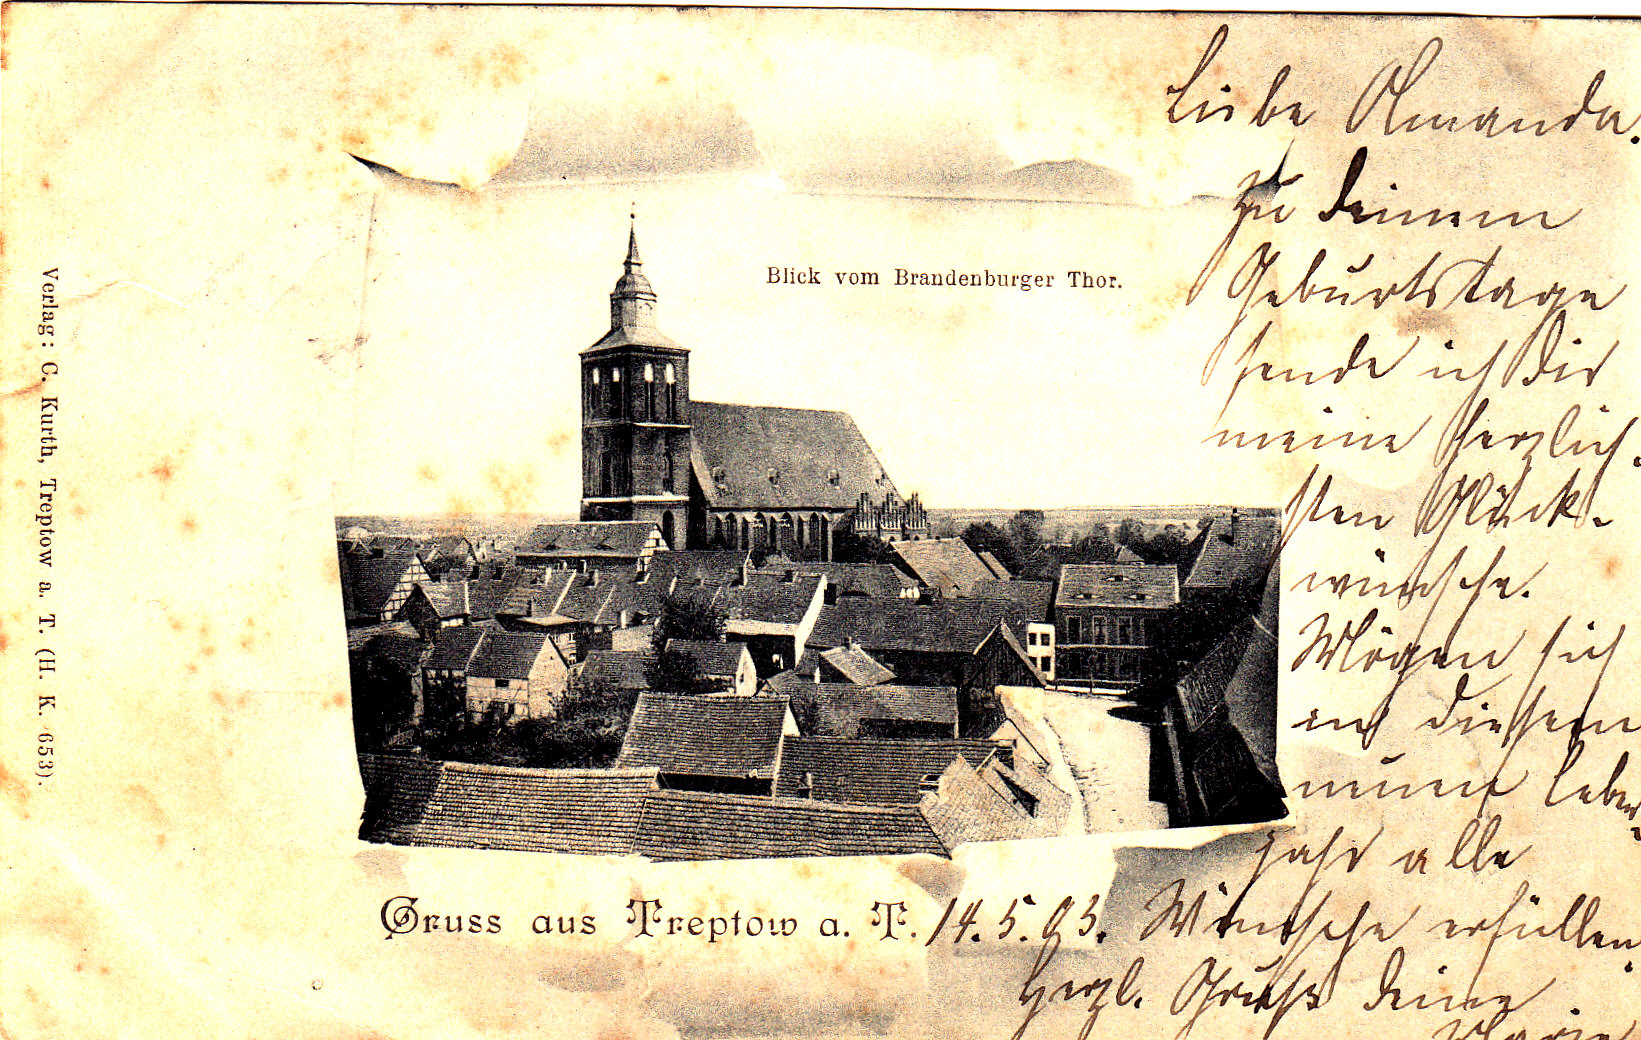 Verlag: C. Kurth, Treptow a. T. (H. K. 653).
Blick vom Brandenburger Thor.
Gruss aus Treptow a. T.
14. 5. 03.
Liebe Amanda.
zu deinem
Geburtstage
sende ich Dir
meine herzlich.
sten Glück-
wünsche.
Mögen sich
in diesem
neuen Leber
jahr alle
Wünsche erfüllen
Herzl. Grüße Deine
Marie